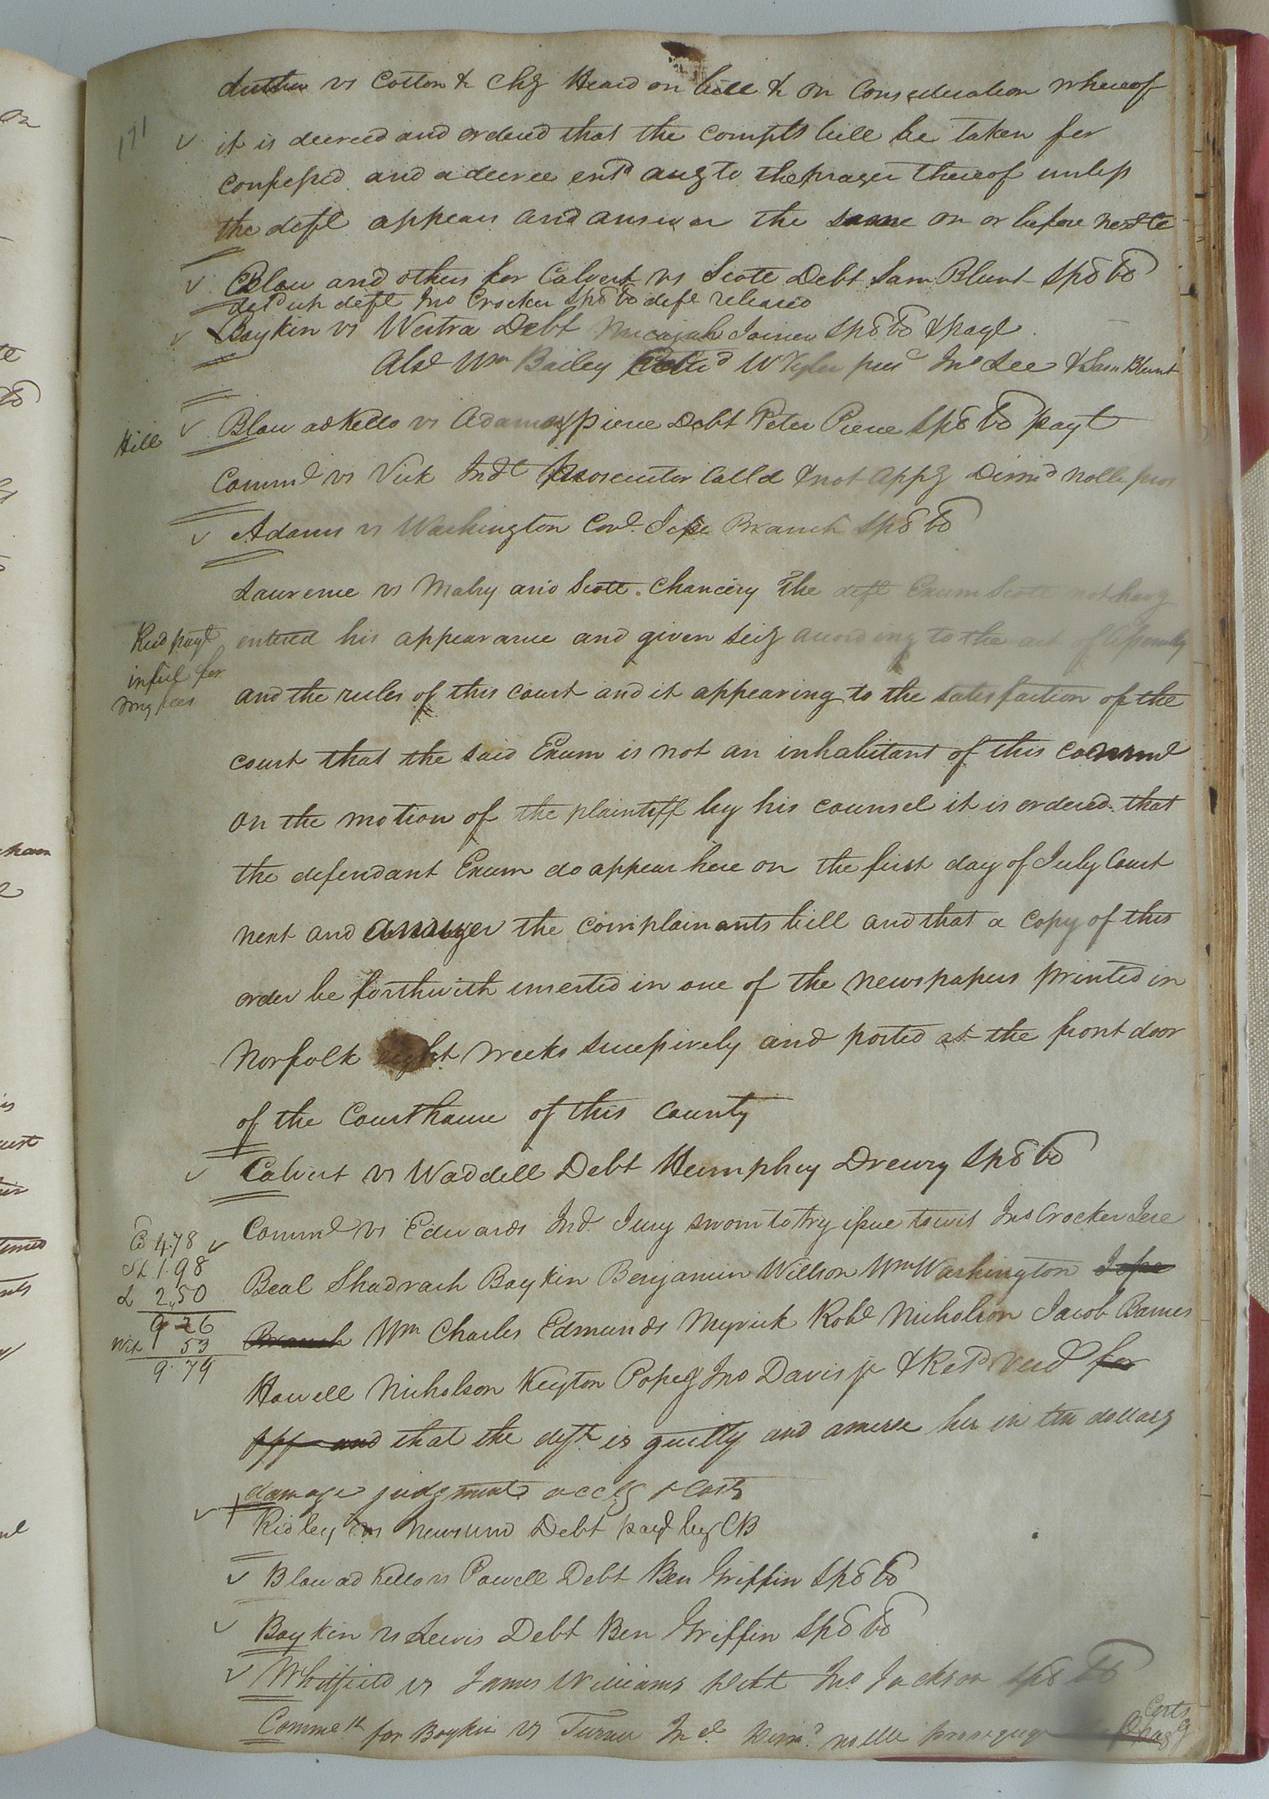 171
vs Cotton & Chy Heard on bill & on Consideration whereof
it is decreed and ordered that the Compts bill be taken for
confessed and a decree entd aug to the prayer thereof unless
the deft appears and answer the same on or before next Ct
Blow and others for Calvert vs Scott Debt Sam Blunt Spd bd
deft Jno Crocker Spd bd deft releasd
Boykin vs Westra Debt Micajah Joiner Spd bd & payt
Also Wm Bailey W Tyler Jno Lee & Sam Blunt
Hill
Blow ad Kello vs Adams & Pierce Debt Peter Pierce Spd bd payt
Commd vs Vick Indt Prosecutor Calld & not appg Dismd nolle pros
Adams vs Washington Covt Jesse Branch Spd bd
Laurence vs Mabry and Scott. Chancery The deft Exum Scott not havg
Recd payt
in full for
my fees
entered his appearance and given secy according to the act of Assembly
and the rules of this court and it appearing to the satisfaction of the
court that the said Exum is not an inhabitant of this commd
on the motion of the plaintiff by his counsel it is ordered that
the defendant Exum do appear here on the first day of July Court
next and answer the complainants bill and that a copy of this
order be forthwith inserted in one of the newspapers printed in
Norfolk eight weeks sucessively and posted at the front door
of the Courthouse of this County
Calvert vs Waddell Debt Humphrey Drewry Spd bd
Commd vs Edwards Ind Jury sworn to try issue towit Jno Crocker Jere
C 4.78
1.98
2.50
9 26
Wit 53
9.79
Beal Shadrach Boykin Benjamin Willson Wm Washington Jesse
Branch Wm Charles Edmunds Myrick Robt Nicholson Jacob Barnes
Howell Nicholson Keyton Pope Jno Davis jr & Retd Verd for
and that the deft is guilty and amerse her in ten dollars
damage judgment accg & Costs
Ridley vs Newsum Debt payt by CB
Blow ad Kello vs Powell Debt Ben Griffin Spd bd
Boykin vs Lewis Debt Ben Griffin Spd bd
Whitfield vs James Williams Debt Jno Jackson Spd bd
Commth for Boykin vs Turner Ind Dismd nolle prosequi Costs